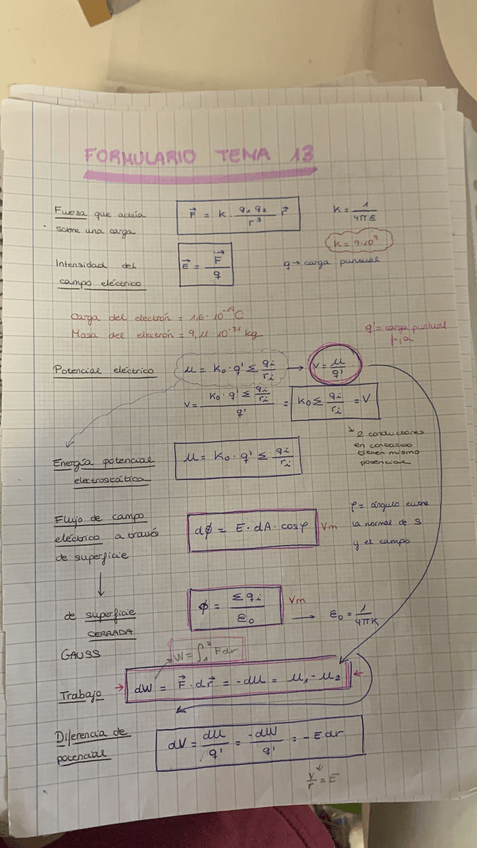 FORMULARIO TEMA 13
Fuerza que actúa
sobre una carga
F = k · q₁ q₂ / r³ r
k = 1 / 4πε
k = 9·10⁹
Intensidad del
campo eléctrico
E = F / q
q → carga puntual
Carga del electrón = 1,6 · 10⁻¹⁹ C
Masa del electrón = 9,11 · 10⁻³¹ kg
q' = carga puntual
fija
Potencial eléctrico
μ = K₀ · q' Σ qi / ri → V = μ / q'
V = K₀ · q' Σ qi / ri / q' = K₀ Σ qi / ri = V
2 conductores
en contacto
tienen mismo
potencial
Energía potencial
electrostática
μ = K₀ · q' Σ qi / ri
Flujo de campo
eléctrico a través
de superficie
dφ = E · dA · cosφ Vm
φ = ángulo entre
la normal de S
y el campo
↓
de superficie
CERRADA
GAUSS
φ = Σ qi / ε₀ Vm → ε₀ = 1 / 4πK
W = ∫₁² F dr
Trabajo → dW = F · dr = -dμ = μ₁ - μ₂
Diferencia de
potencial
dV = dμ / q' = -dW / q' = -E dr
V / r = E